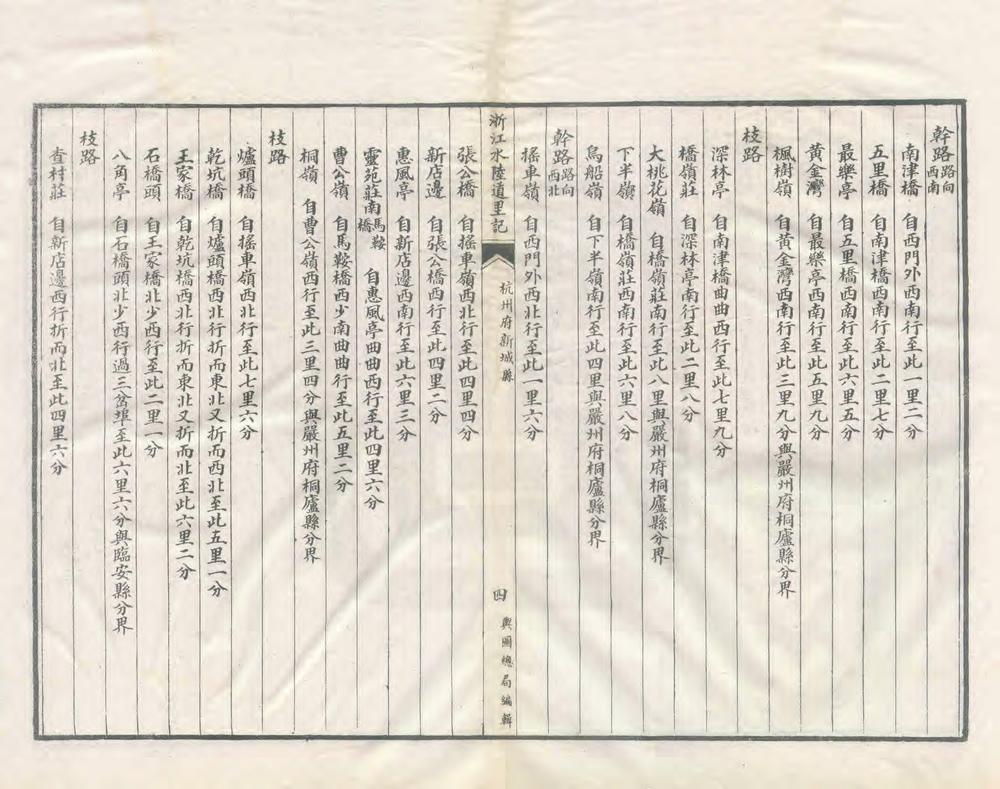 幹路路向西南
南津橋 自西門外西南行至此一里二分
五里橋 自南津橋西南行至此二里七分
最樂亭 自五里橋西南行至此六里五分
黃金灣 自最樂亭西南行至此五里九分
楓樹嶺 自黃金灣西南行至此三里九分與嚴州府桐廬縣分界
枝路
深林亭 自南津橋曲曲西行至此七里九分
橋嶺莊 自深林亭南行至此二里八分
大桃花嶺 自橋嶺莊南行至此八里與嚴州府桐廬縣分界
下半嶺 自橋嶺莊西南行至此六里八分
烏船嶺 自下半嶺南行至此四里與嚴州府桐廬縣分界
幹路路向西北
搖車嶺 自西門外西北行至此一里六分
浙江水陸道里記 杭州府新城縣 四 輿圖總局編輯
張公橋 自搖車嶺西北行至此四里四分
新店邊 自張公橋西行至此四里二分
惠風亭 自新店邊西南行至此六里三分
靈苑莊南馬鞍橋 自惠風亭曲曲西行至此四里六分
曹公嶺 自馬鞍橋西少南曲曲行至此五里二分
桐嶺 自曹公嶺西行至此三里四分與嚴州府桐廬縣分界
枝路
爐頭橋 自搖車嶺西北行至此七里六分
乾坑橋 自爐頭橋西北行折而東北又折而西北至此五里一分
王家橋 自乾坑橋西北行折而東北又折而北至此六里二分
石橋頭 自王家橋北少西行至此二里一分
八角亭 自石橋頭北少西行過三岔埠至此六里六分與臨安縣分界
枝路
查村莊 自新店邊西行折而北至此四里六分